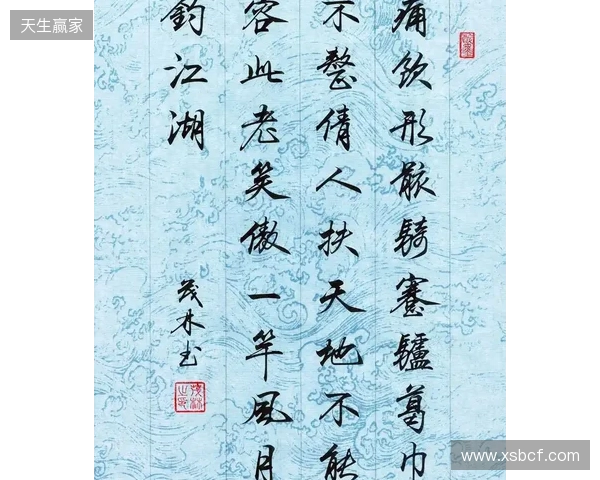 天生赢家
痛飲形骸騎蹇驢葛巾
不整倩人扶天地不能
容此老笑傲一竿風月
釣江湖
茂林书
www.xsbcf.com